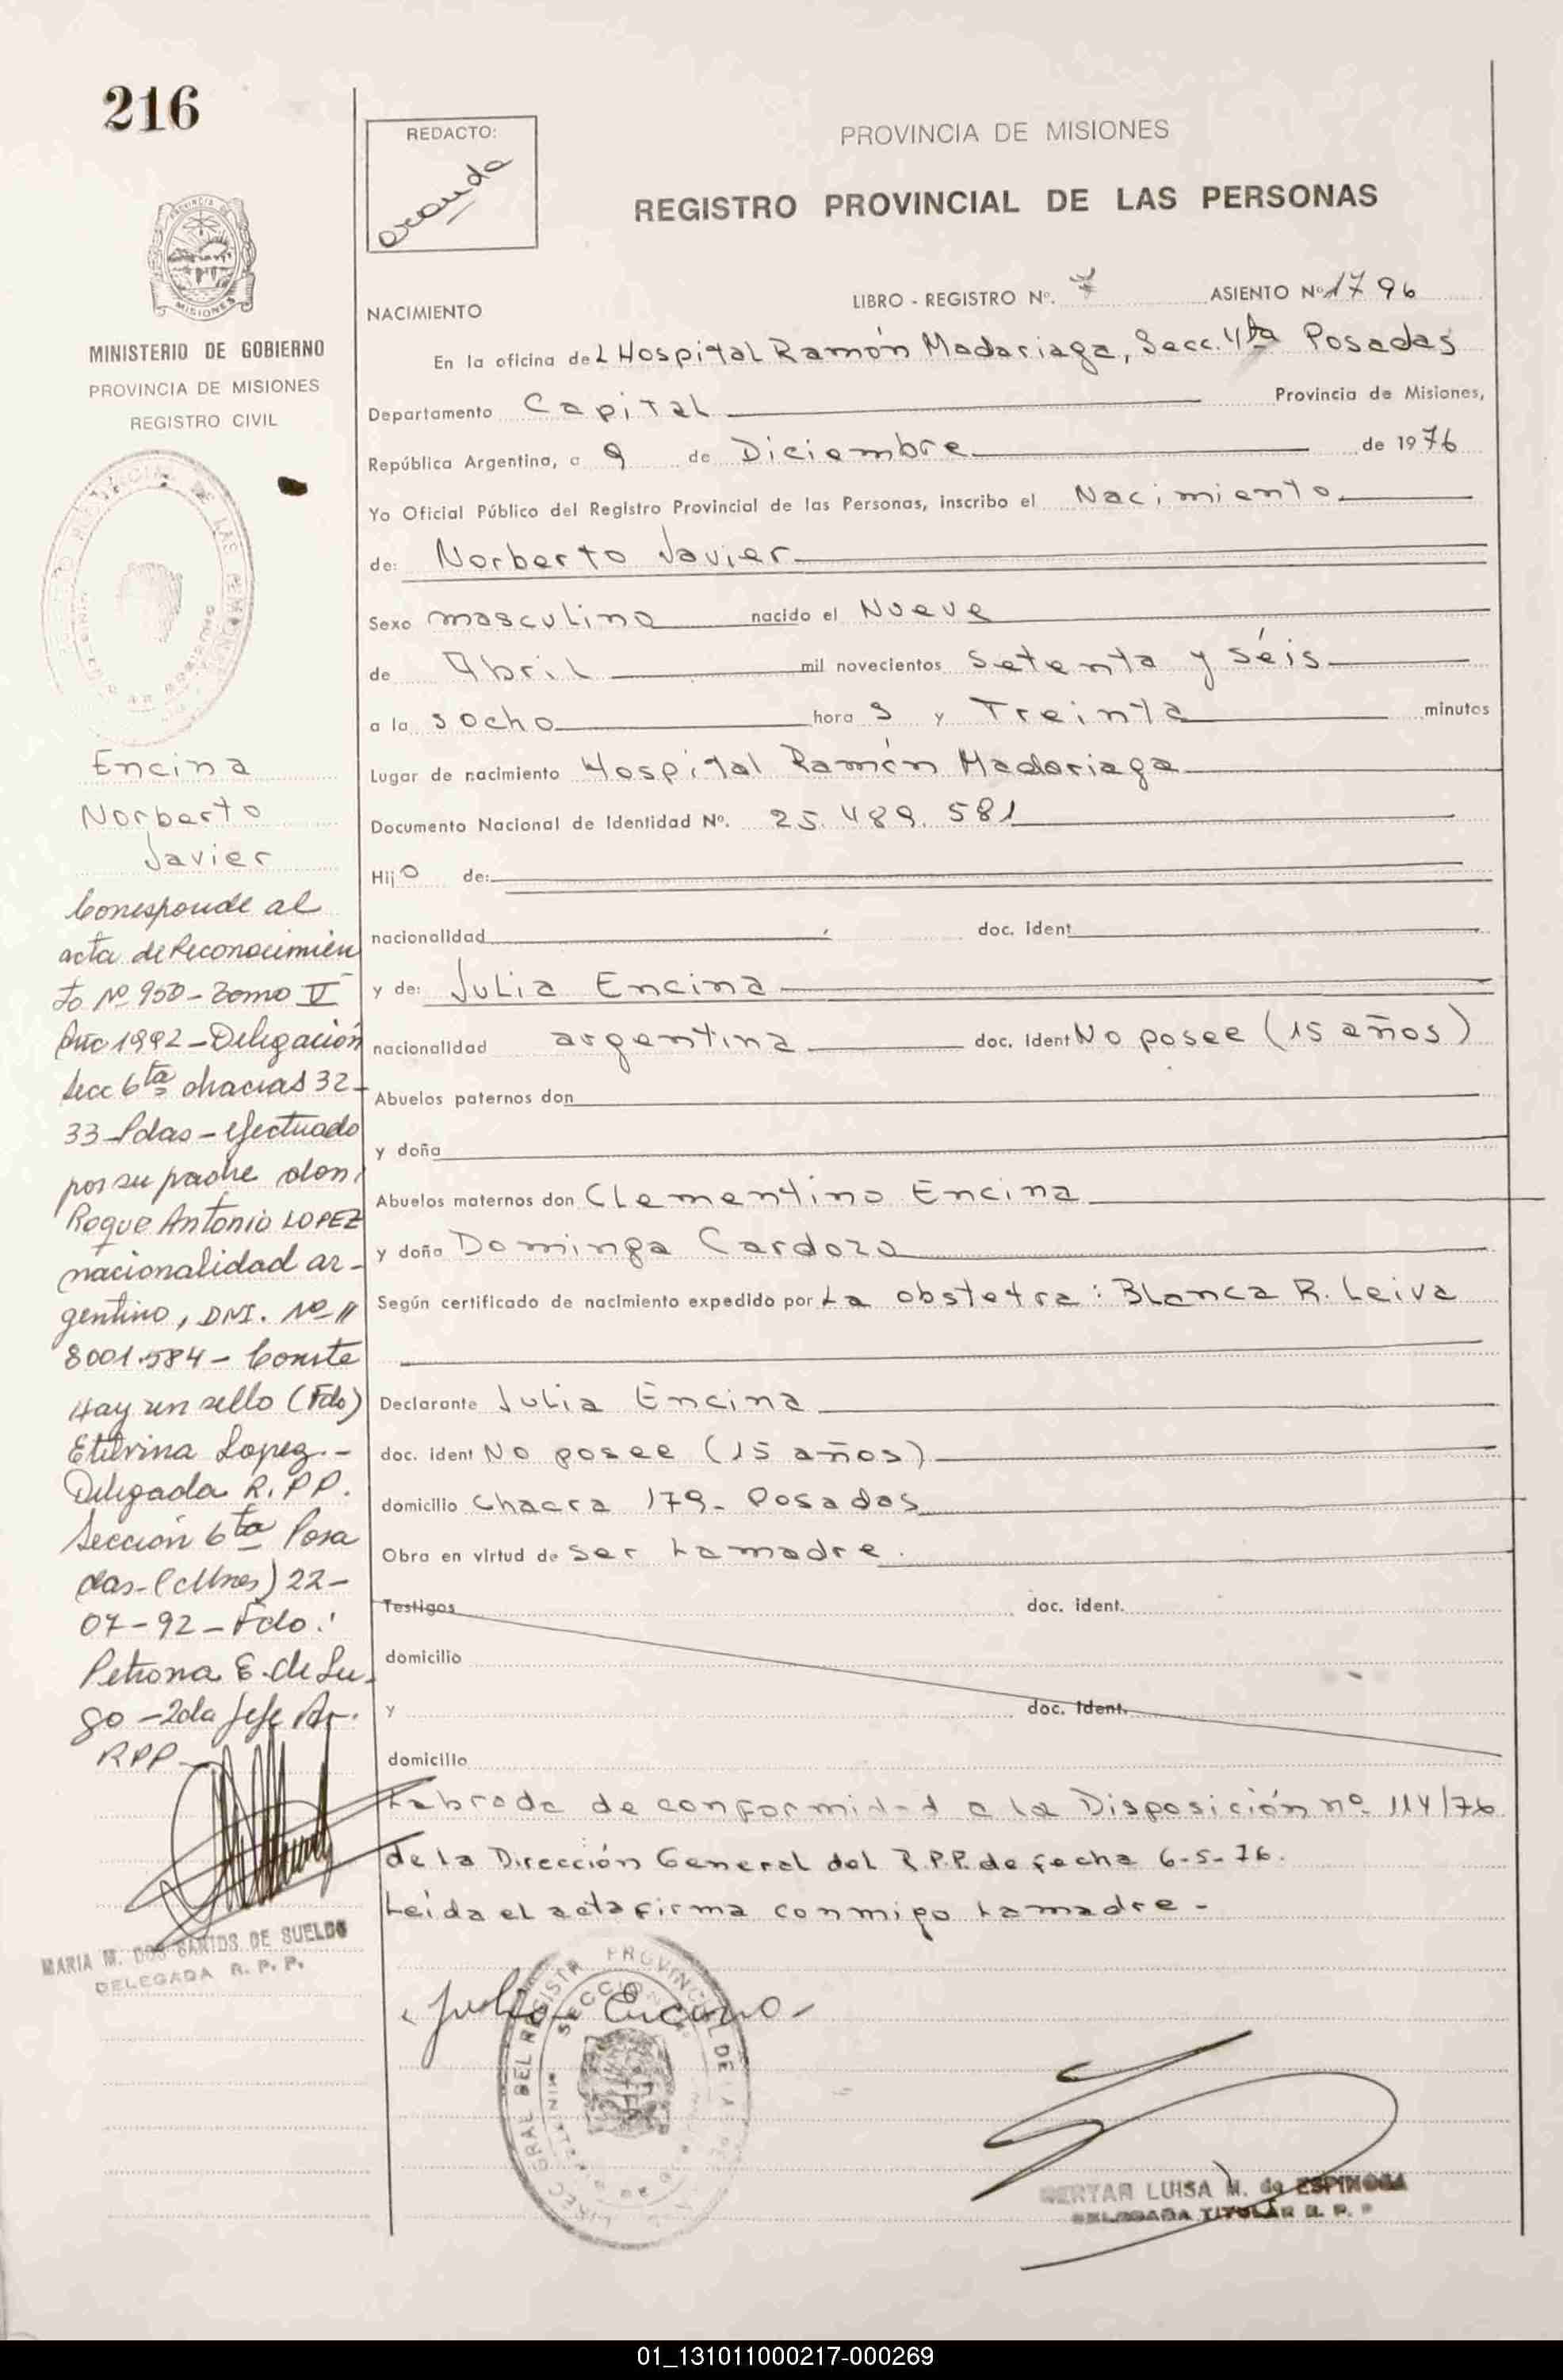 216
REDACTO:
PROVINCIA DE MISIONES
REGISTRO PROVINCIAL DE LAS PERSONAS
MISIONES
MINISTERIO DE GOBIERNO
PROVINCIA DE MISIONES
REGISTRO CIVIL
NACIMIENTO
LIBRO - REGISTRO Nº. 7 ASIENTO Nº 1796
En la oficina del Hospital Ramón Madariaga, Secc. 4ta Posadas
Departamento Capital Provincia de Misiones,
República Argentina, a 9 de Diciembre de 1976
Yo Oficial Público del Registro Provincial de las Personas, inscribo el Nacimiento
de: Norberto Javier
Sexo masculino nacido el Nueve
de Abril mil novecientos setenta y séis
a la s ocho hora s y Treinta minutos
Lugar de nacimiento Hospital Ramón Madariaga
Documento Nacional de Identidad Nº. 25.489.581
Hijo de:
nacionalidad doc. ident
y de: Julia Encina
nacionalidad argentina doc. ident No posee (15 años)
Abuelos paternos don
y doña
Abuelos maternos don Clementino Encina
y doña Dominga Cardozo
Según certificado de nacimiento expedido por La obstetra: Blanca R. Leiva
Declarante Julia Encina
doc. ident No posee (15 años)
domicilio Chacra 179- Posadas
Obra en virtud de ser La madre.
Testigos doc. ident.
domicilio
y doc. ident.
domicilio
Labrada de conformidad a la Disposición nº 114/76
de la Dirección General del R.P.P. de fecha 6-5-76.
Leída el acta firma conmigo La madre -
Julia Encina
LUISA M. de ESPINOSA
DELEGADA TITULAR R. P. P
Encina
Norberto
Javier
Corresponde al
acta de Reconocimien
to Nº 950 - Tomo V
Año 1992 - Delegación
Secc 6ta chacras 32-
33 Pdas - efectuado
por su padre don
Roque Antonio LOPEZ
nacionalidad ar-
gentino, DNI. Nº
8001.584 - Conste
Hay un sello (Fdo)
Etelvina Lopez -
Delegada R.P.P.
Sección 6ta Posa
das - (Mnes) 22-
07-92 - Fdo:
Petrona E. de Lu-
go - 2da Jefe
RPP
MARIA M. DOS SANTOS DE SUELDO
DELEGADA R. P. P.
01_131011000217-000269